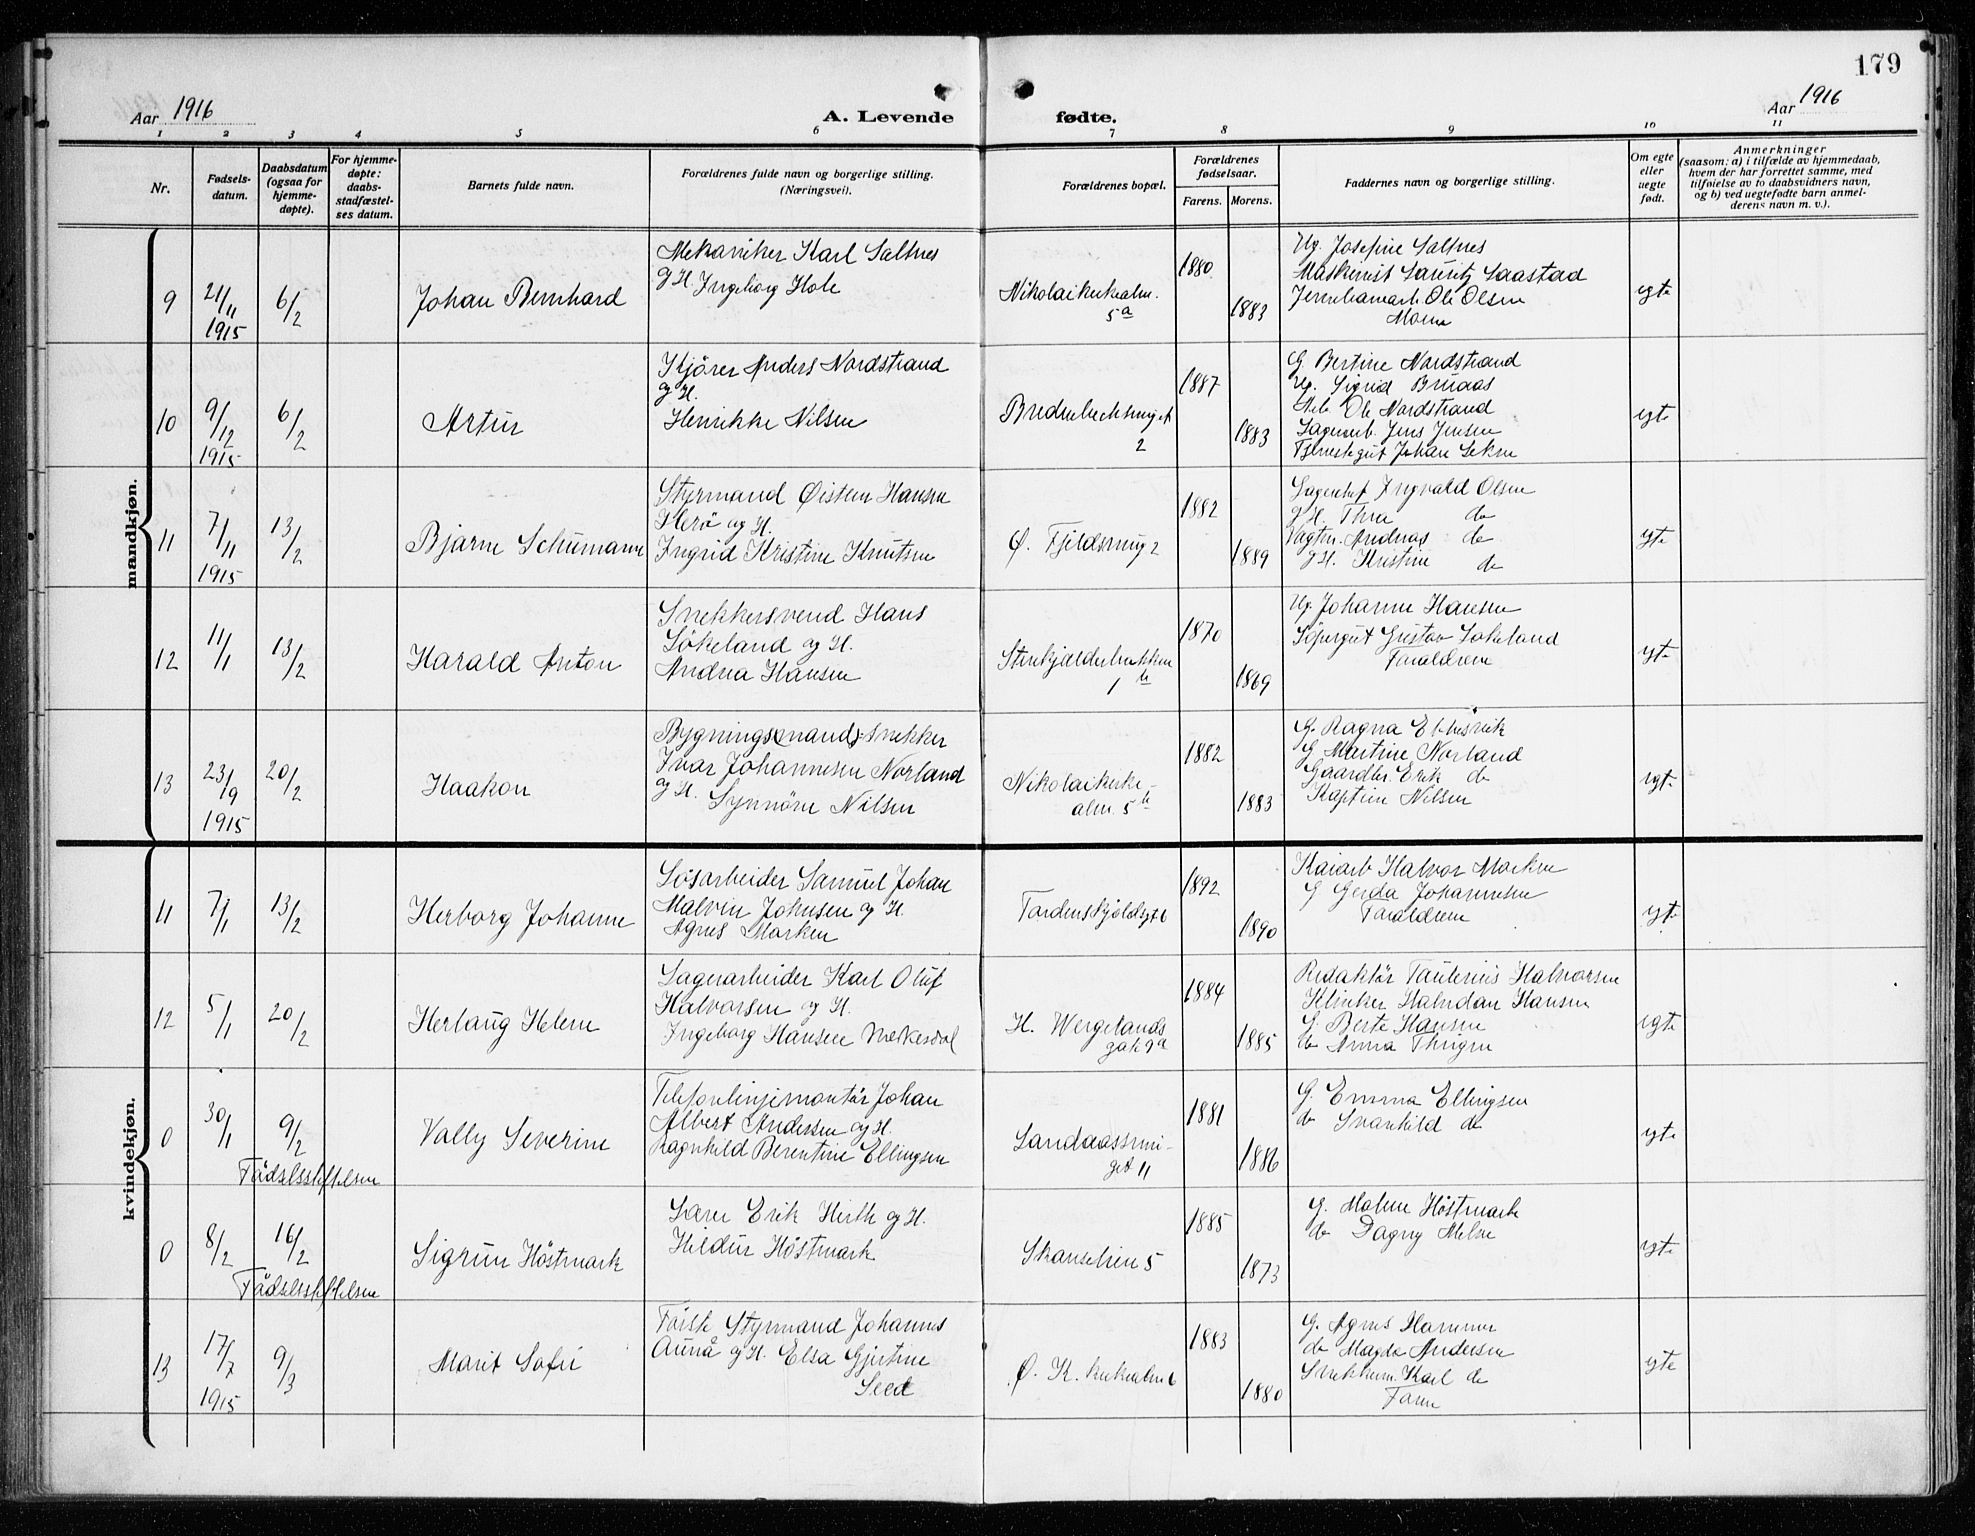 179
Aar 1916
A. Levende fødte.
Aar 1916
1 2 3 4 5 6 7 8 9 10 11
Nr.
Fødselsdatum.
Daabsdatum (ogsaa for hjemmedøpte).
For hjemmedøpte: daabsstadfæstelses datum.
Barnets fulde navn.
Forældrenes fulde navn og borgerlige stilling. (Næringsvei).
Forældrenes bopæl.
Forældrenes fødselsaar.
Farens. Morens.
Faddernes navn og borgerlige stilling.
Om egte eller uegte født.
Anmerkninger
(saasom: a) i tilfælde av hjemmedaab, hvem der har forrettet samme, med tilføielse av to daabsvidners navn, og b) ved uegtefødte barn anmelderens navn m. v.).
mandkjøn.
9
21/11 1915
6/2
Johan Bernhard
Mekaniker Karl Saltnes
og H. Ingeborg Hole
Nikolaikirkealm.
5a
1880
1883
Ug. Josefine Saltnes
Maskinist Lauritz Saastad
Ole Olsen
Moren
egte
10
9/12 1915
6/2
Artur
Kjører Anders Nordstrand
og H.
Henrikke Nilsen
2
1887
1883
G. Bertine Nordstrand
Ug. Sigrid Bruaas
Arb. Ole Nordstrand
Lagerarb. Jens Jensen
Tjenestegut Johan
egte
11
7/11 1915
13/2
Bjarne Schumann
Styrmand Øistein Hansen
Herø og H.
Ingrid Kristine Knutsen
Ø. Fjeldsmug 2
1882
1889
Lagerchef Ingvald Olsen
g H. Thea do
Vagtm. Andreas do
g H. Kristine do
egte
12
11/1
13/2
Harald Anton
Snekkersvend Hans
Søkeland og H.
Andrea Hansen
Stenkjælderbakken
1 b
1870
1869
Ug. Johanne Hansen
Løpergut Gustav Søkeland
Forældrene
egte
13
23/9 1915
20/2
Haakon
Bygningssnekker
Ivar Johannesen Norland
og H. Synnøve Nilsen
Nikolaikirke-
alm. 5 b
1882
1883
G. Ragna Ebbesvik
G. Martine Norland
Gaardbr. Erik do
Kaptein Nilsen
egte
kvindekjøn.
11
7/1
13/2
Herborg Johanne
Løsarbeider Samuel Johan
Malvin Johnsen og H.
Agnes Marken
Tordenskjoldsgt 6
1892
1890
Kaiarb Halvor Marken
G Gerda Johannesen
Forældrene
egte
12
5/1
20/2
Herlaug Helene
Lagerarbeider Karl Oluf
Halvorsen og H.
Ingeborg Hansen Mækesdal
H. Wergelands
gate 9a
1884
1885
Redaktør Halvorsen
Klinker Halvdan Hansen
G. Berte Hansen
do Anna
egte
0
30/1
9/2
Fødselsstiftelsen
Vally Severine
Telefonlinjemontør Johan
Albert Andersen og H.
Ragnhild Berentine Ellingsen
Landaassmu-
get 11
1881
1886
G. Emma Ellingsen
do Svanhild do
egte
0
8/2
16/2
Fødselsstiftelsen
Sigrun Høstmark
Lærer Erik Hirth og H.
Hildur Høstmark
Skanselien 5
1885
1873
G. Malene Høstmark
do Dagny
egte
13
17/7 1915
9/3
Marit Sofie
Første Styrmand Johannes
Aunå og H. Elsa Gjertine
Seed
Ø. K. kirkealm 6
1883
1880
G. Agnes Hammer
do Magda Andersen
Snekkerm. Karl do
Faren
egte